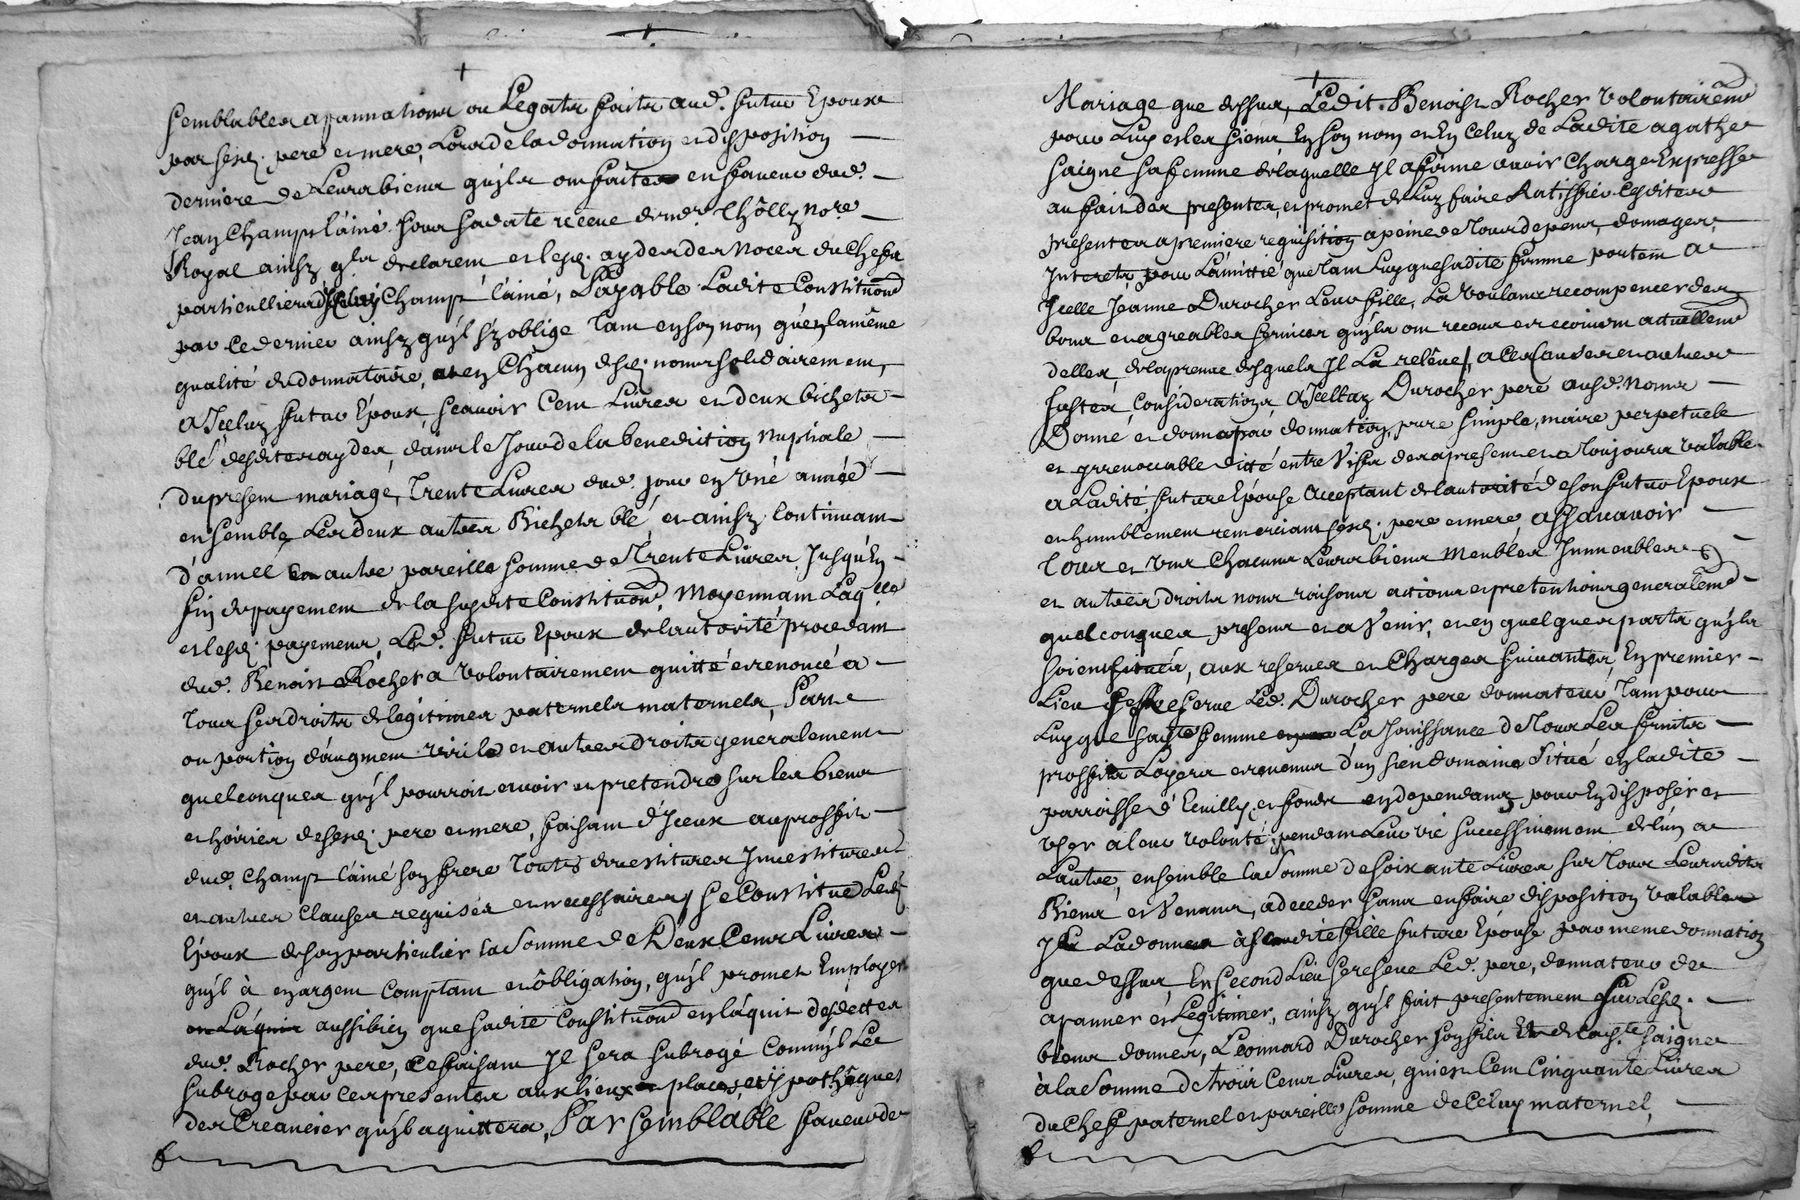 semblables apannations ou Legats faits aud. futur Epoux
par sesd. pere et mere, Lors de la donnation et disposition
derniere de Leurs biens quyls ont faites en faveur dud.
Jean Champt l'ainé sous sa date receue de me Thôlly nore
Royal ainsy qls declarent et lesd. aydes des Noces du Chefs
particulliers dud. Champt l'ainé, Payable Ladite Constitu͠on
par ce dernier ainsy quyl s'y oblige Tant en son nom qu'en la même
qualité de donnataire, et en Chacun desd. noms solidairement,
a Iceluy futur Epoux, scavoir Cent Livres et deux bichets
blé desdites aydes, dans le Jour de la benediction Nuptiale
du present mariage, Trente Livres dud. jour en Une année
ensemble Les deux autres Bichets blé et ainsy continuant
d'année en autre pareille somme de Trente Livres Jusqu'En
fin de payement de la susdite Constitu͠on, Moyennant Laqlle
et lesd. payements, Led. futur Epoux de l'autorité procedant
dud. Benoist Rocher a volontairement quitté et renoncé a
Tous ses droits de legitimes paternels maternels, Part
ou portion d'augment virile et autres droits generalement
quelconques quyl pourroit avoir et pretendre sur les biens
et hoiries desesd. pere et mere, faisant d'Iceux au proffit
dud. Champt l'ainé son frere Toutes devestitures Investitures
et autres clauses requises et necessaires, se Constitue Led.
Epoux de son particulier la somme de Deux Cents Livres
quyl à en argent Comptant et ôbligation, quyl promet Employer
aussi bien que sadite Constitu͠on en l'aquit des dettes
dud. Rocher pere, ce faisant Jl sera subrogé Comm'yl Le
subroge par ces presentes aux lieux places et ypothêques
des Creanciers quyl aquittera, Par semblable faveur de
Mariage que dessus, Ledit Benoist Rocher volontairem͠t
pour Luy et les siens En son nom et En Celuy de Ladite agathe
saigne sa femme de laquelle Jl afirme avoir Charge Expresse
au fait des presentes, et promet de Luy faire Ratiffier Cesdites
presentes a premiere requisition a peine de Tous depens, domages
Interets, pour L'amitié que Tant Luy que sadite femme portent a
Icelle Jeanne Durocher Leur fille, La voulant recompenser des
bons et agreables services quyls ont receus et recoivent actuellem͠t
delles, de la preuve desquels Jl La relêve, a Ces Causes et autres
justes Considerations a Icelluy Durocher pere ausd. Noms
Donné et donne par donnation pure simple, maire perpetuele
et yrrevocable ditté entre Vifs des a present et a Toujours valable
a Ladite future Epouse acceptant de l'autorité de son futur Epoux
et humblement remerciant sesd. pere et mere, assavavoir
Tous et Uns Chacuns Leurs biens Meubles Immeubles
et autres droits noms raisons actions et pretentions generalem͠t
quelconques presents et a Venir, et en quelques parts quyls
soient situés, aux reserves et Charges suivantes, En premier
Lieu se reserve Led. Durocher pere donnateur Tant pour
Luy que sadte femme La Jouissance de Tous Les fruits
proffits Loyers et revenus d'un sien domaine Situé en Ladite
parroisse d'Eculli et fonds en dependans pour En disposer et
User a leur volonté, pendant Leur vie successivement de l'un a
Lautre, ensemble la somme de soixante Livres sur Tous Leursdits
Biens et Venants, a deceder sans en faire disposition valable
Jls La donnent à Ladite fille future Epouse par meme donnation
que dessus En second Lieu se reserve Led. pere, donnateur de
apanner et Legitimer, ainsy quyl fait presentement sur Lesd.
biens donnés, Leonnard Durocher son fils Et de lad.te Saigne
à la somme de Trois Cents Livres, qui est Cent Cinquante Livres
du Chef paternel et pareille somme de Celuy maternel,